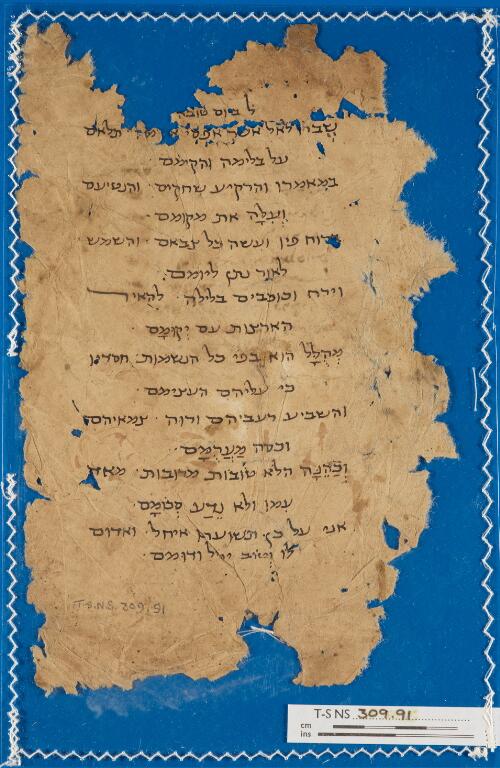 ל ביום טובה
שבח לאל אשר ארץ תלאם
על בלימה והקימם
במאמרו והרקיע שחקים והנטיעם
ועלה את מקומם
ברוח פיו ועשה כל צבאם והשמש
לאור נתן ליומם
וירח וכוכבים בלילה להאיר
הארצות עם יקומם
מהלל הוא בפי כל הנשמות חסדו
כי עליהם העצימם
והשביע רעביהם ורוה צמאיהם
וכסה מערמם
וכהנה הלא טובות מרובות מאת
עמו ולא נדע סכומם
אני על כן אוחיל ואדום
לו וטוב יחיל ודומם
T-S NS 309.91
T-S NS 309.91
cm
ins